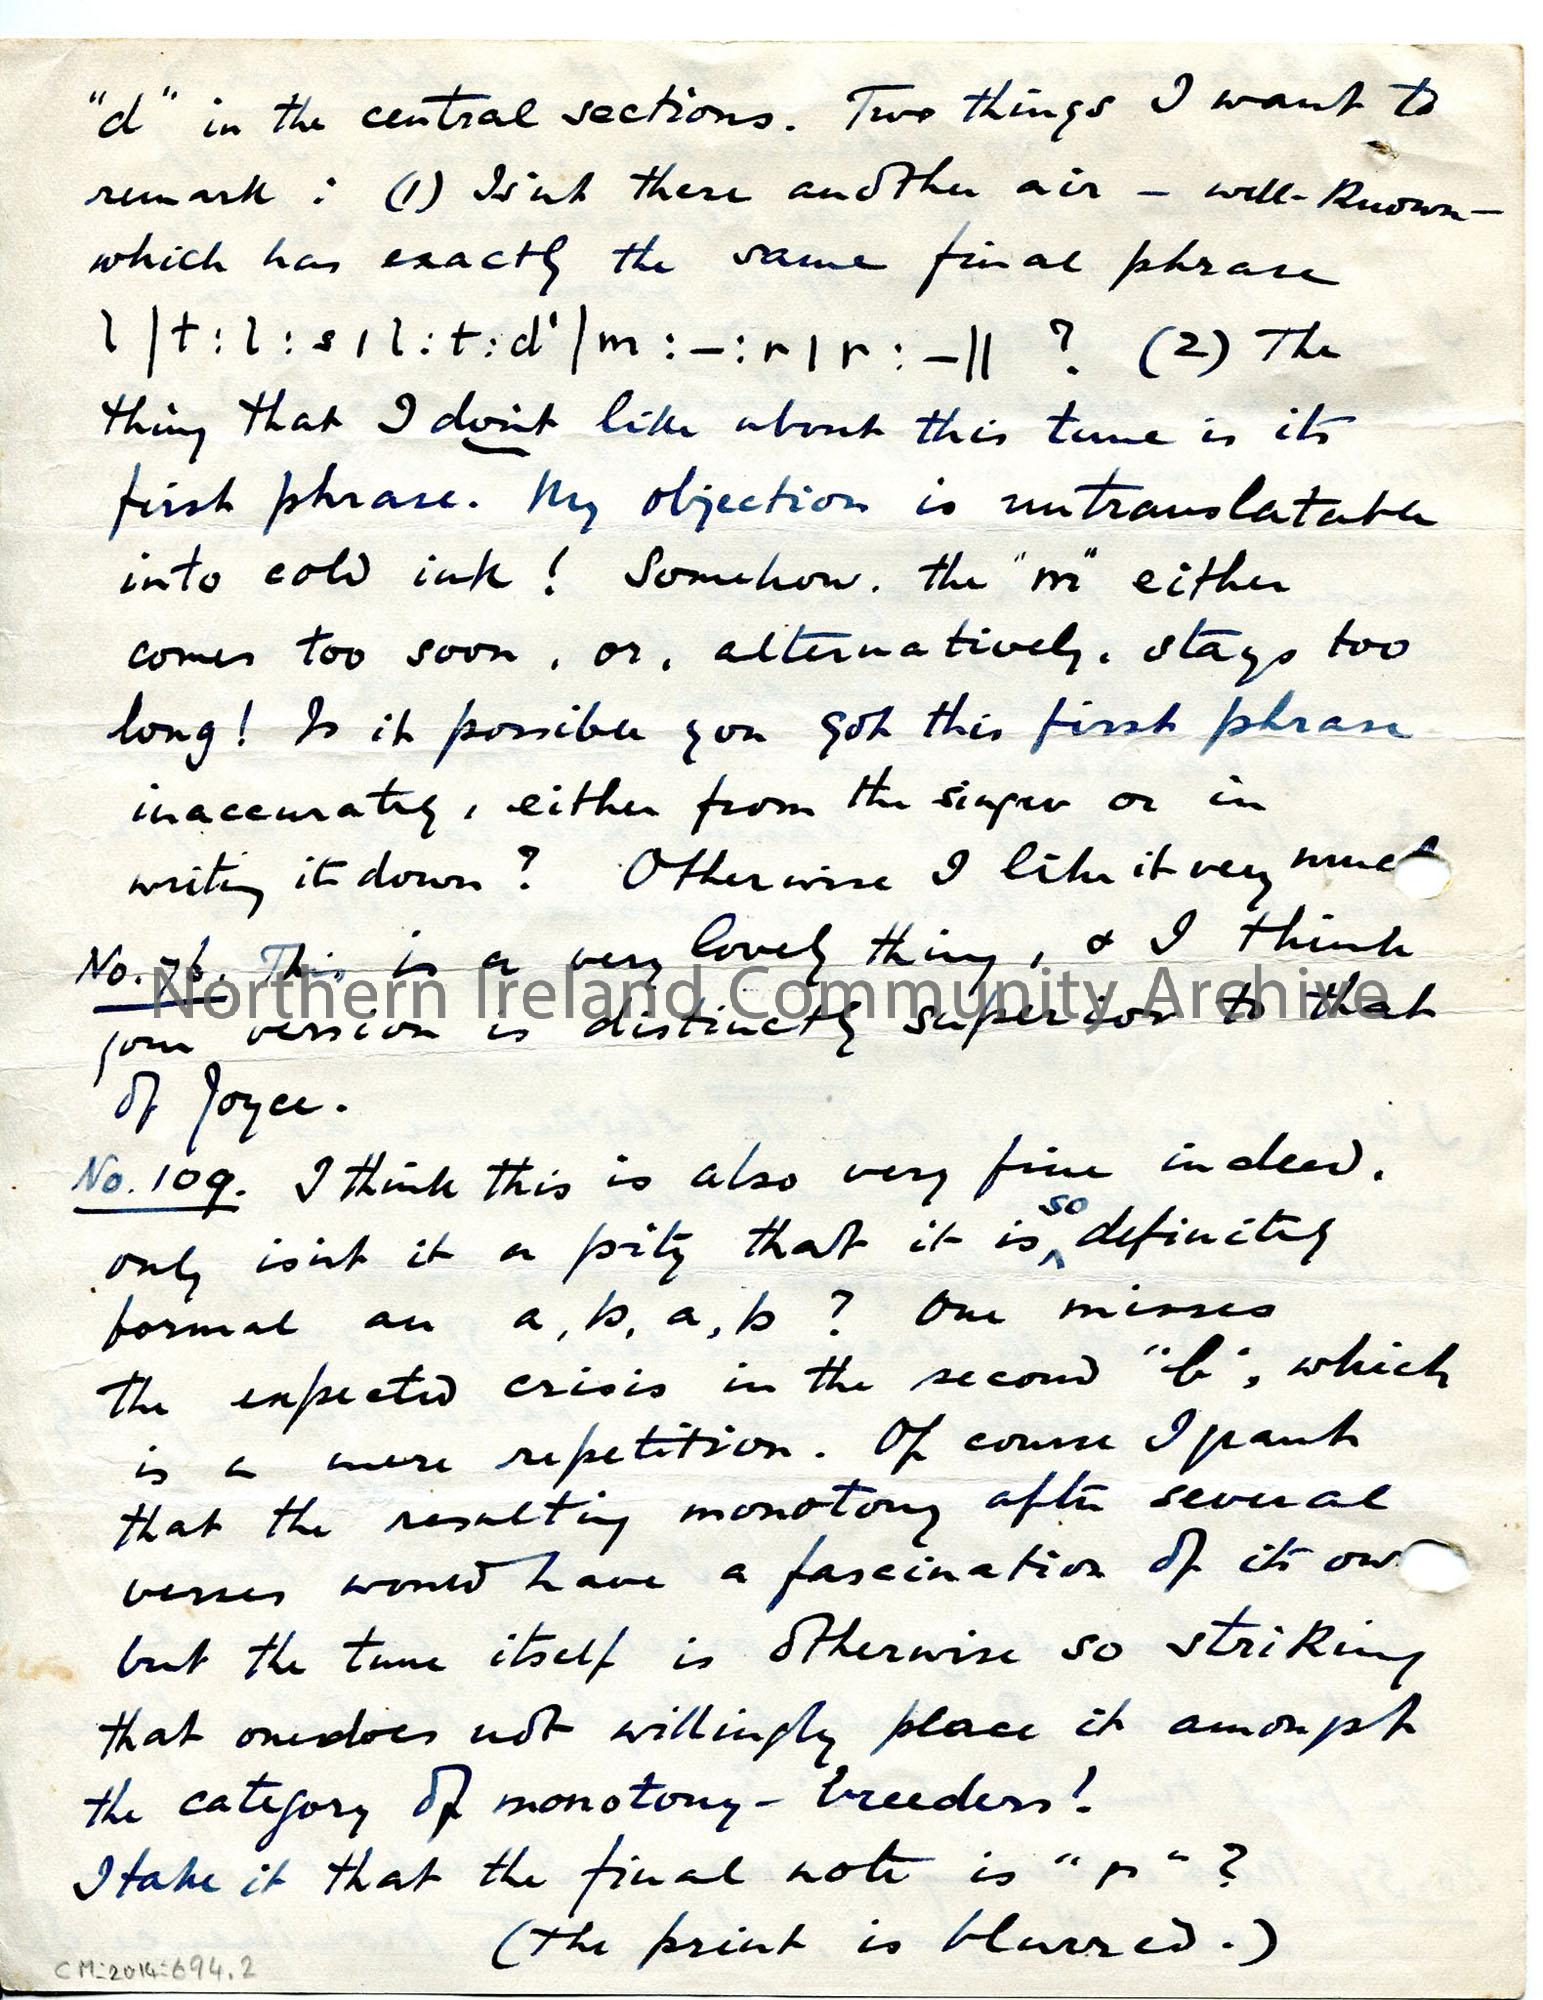 "d" in the central sections. Two things I want to
remark : (1) Isn't there another air – well-known –
which has exactly the same final phrase
l | t : l : s | l : t : d' | m : – : r | r : – || ? (2) The
thing that I don't like about this tune is its
first phrase. My objection is untranslatable
into cold ink! Somehow, the "m" either
comes too soon, or, alternatively, stays too
long! Is it possible you got this first phrase
inaccurately, either from the singer or in
writing it down? Otherwise I like it very much
No. 76. This is a very lovely thing, & I think
your version is distinctly superior to that
of Joyce.
No. 109. I think this is also very fine indeed.
only isn't it a pity that it is so definitely
formal an a, b, a, b ? One misses
the expected crisis in the second "b", which
is a mere repetition. Of course I grant
that the resulting monotony after several
verses would have a fascination of its own
but the tune itself is otherwise so striking
that one does not willingly place it amongst
the category of monotony-breeders!
I take it that the final note is "r" ?
(the print is blurred.)
Northern Ireland Community Archive
CM:2014:694.2